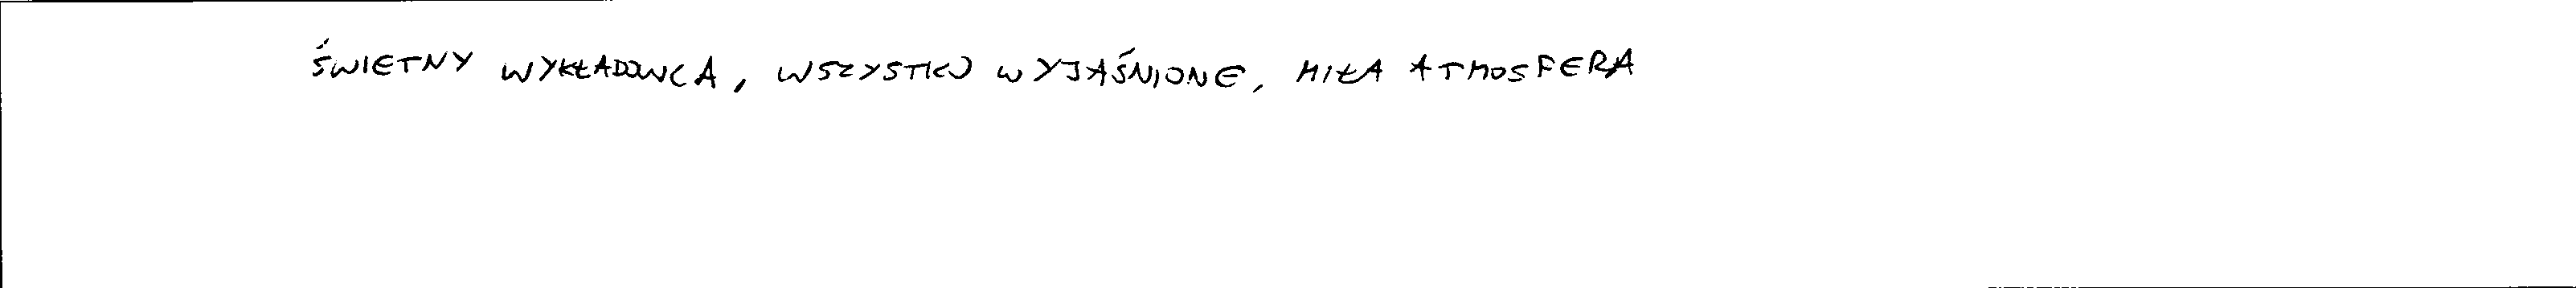 ŚWIETNY WYKŁADOWCA, WSZYSTKO WYJAŚNIONE, MIŁA ATMOSFERA